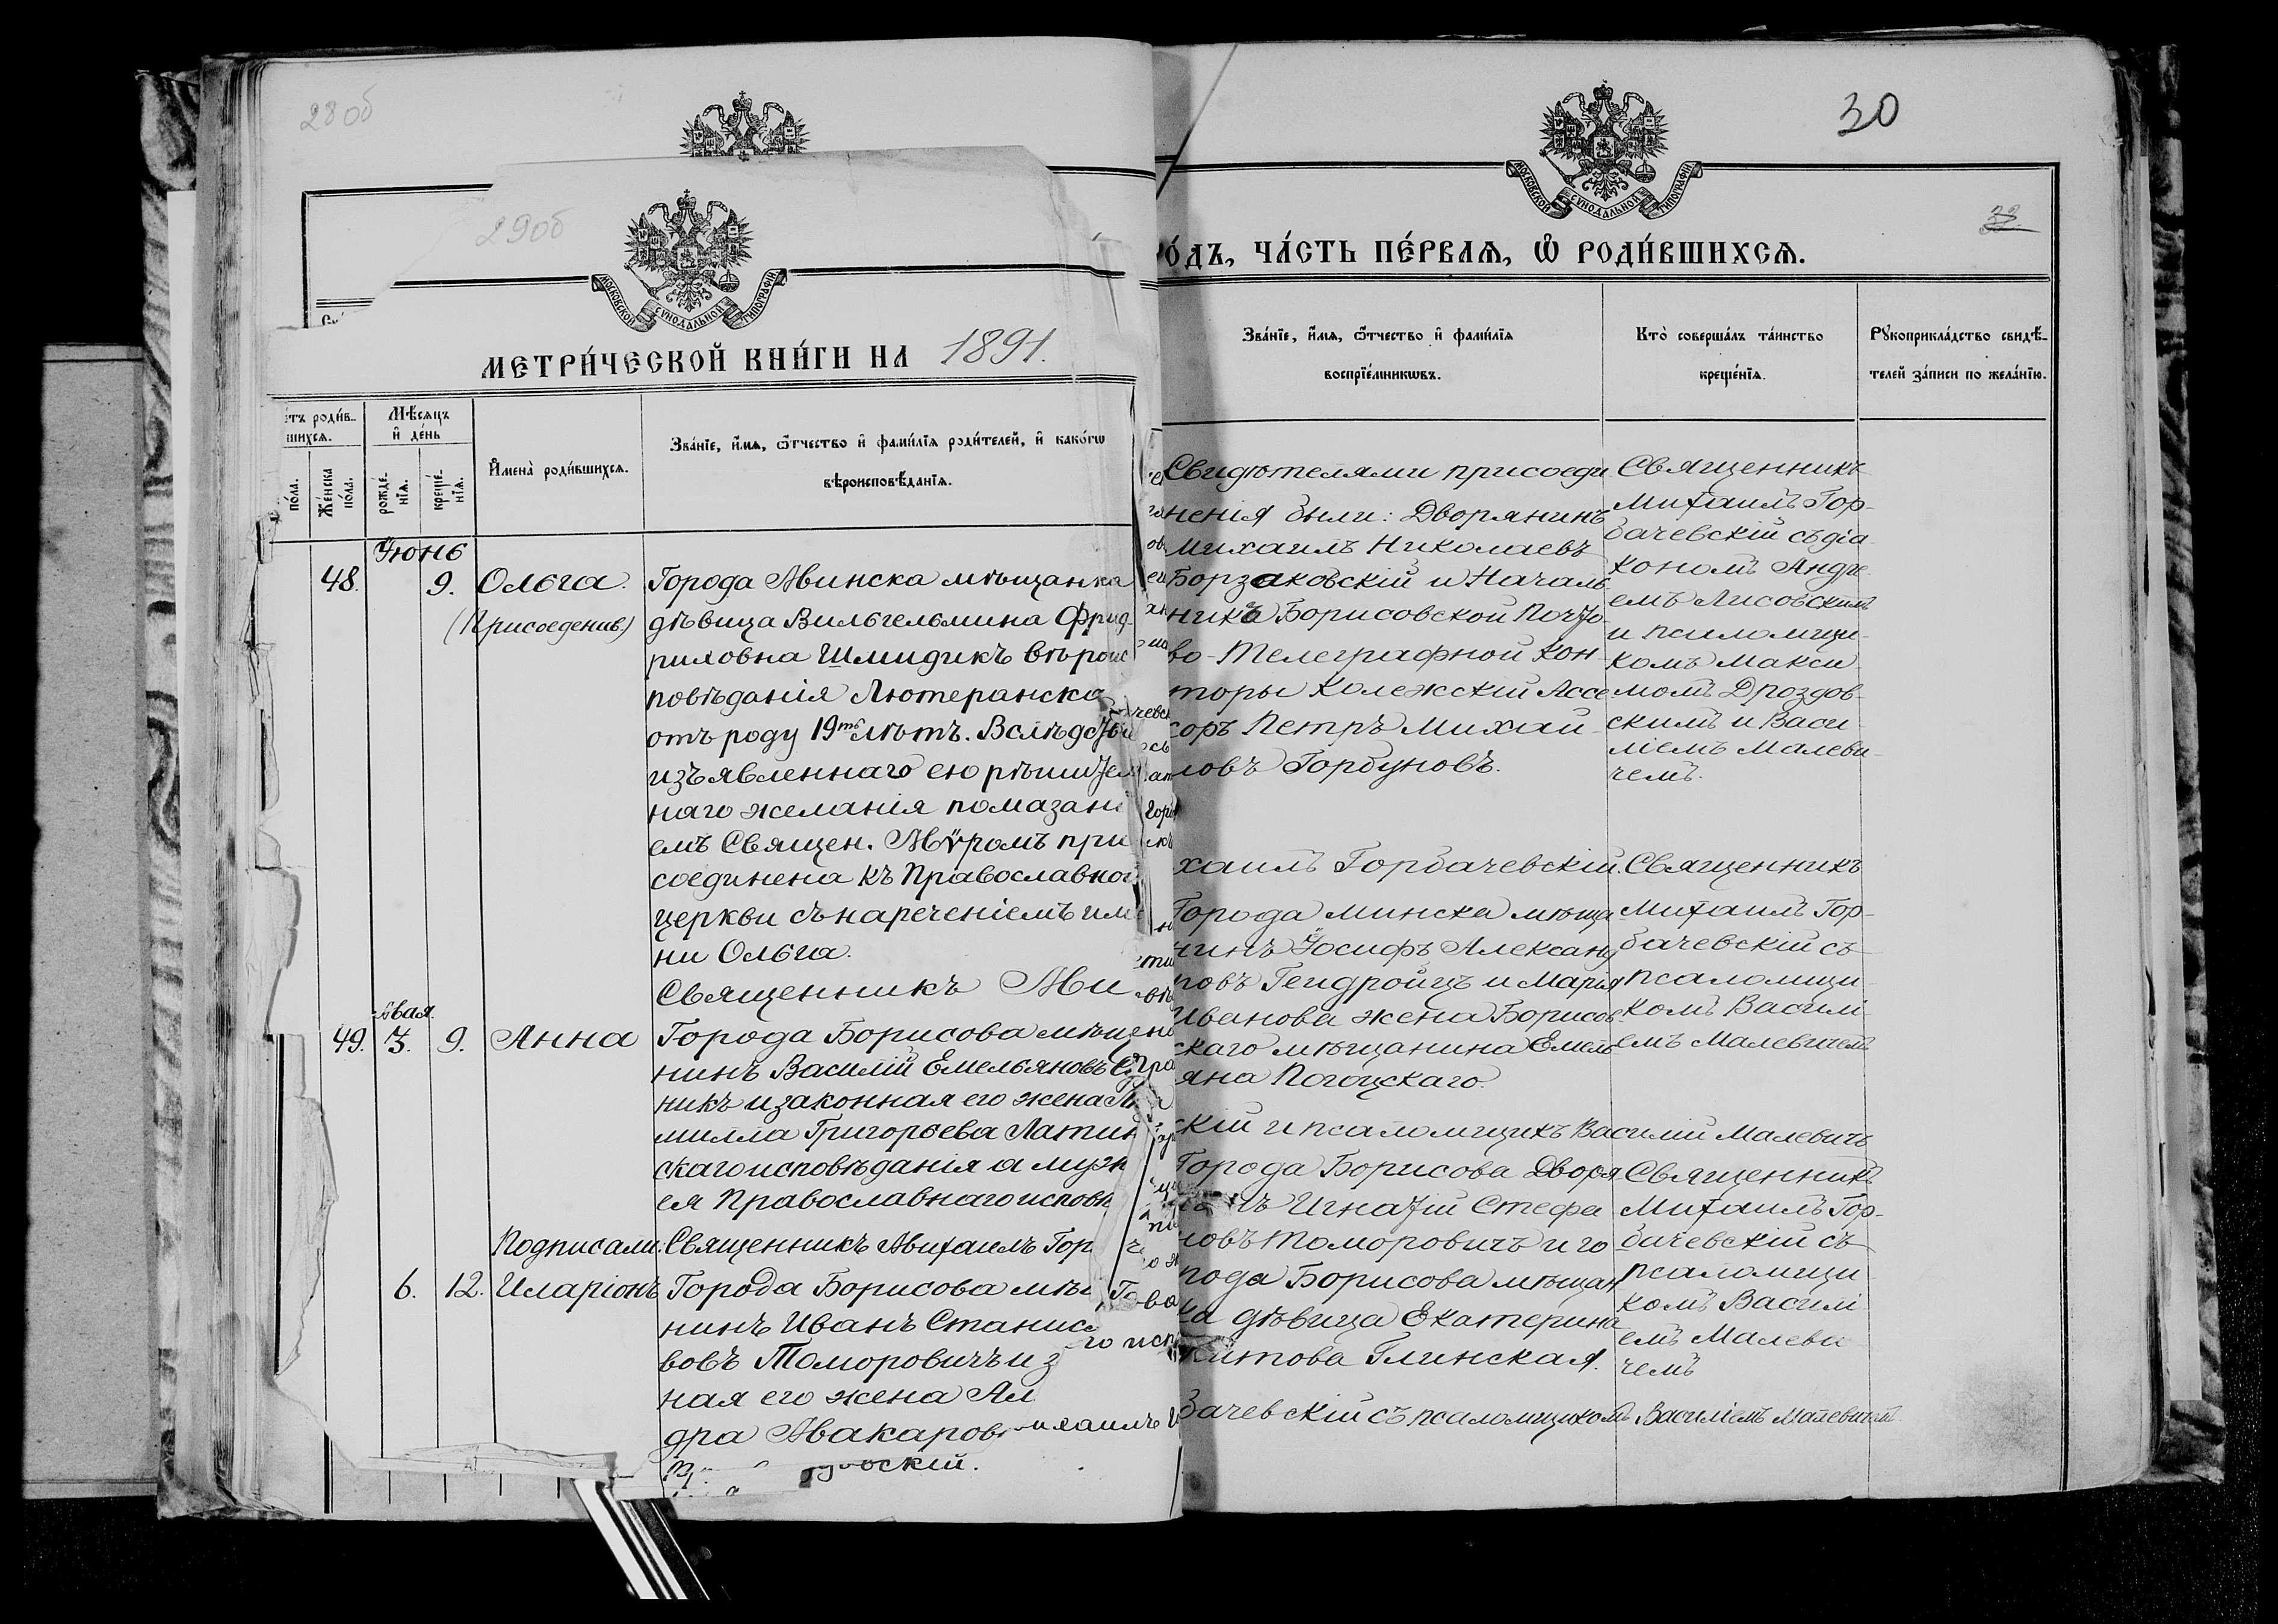 28об
29об
МОСКОВСКОЙ СУНОДАЛЬНОЙ ТИПОГРАФІИ
МЕТРИ́ЧЕСКОЙ КНИ́ГИ НА 1891.
роди́в-
шихсѧ.
Мѣ́сѧцъ
и҆ де́нь
И҆мена̀ роди́вшихсѧ.
Зва́нїе, и҆́мѧ, ѻ҆́тчество и҆ фами́лїѧ роди́телей, и҆ како́гѡ
вѣроисповѣ́данїѧ.
по́ла.
Же́нска
по́ла.
рожде́-
нїѧ.
креще́-
нїѧ.
Іюнь
48. 9. Ольга. Города Минска мѣщанка
(Присоеденив) дѣвица Вильгельмина Фрид-
риховна Шмидикъ вѣроис
повѣданія Лютеранска
отъ роду 19ть лѣтъ. Вслѣдстви
изъявленнаго ею рѣшител
наго желанія помазані
емъ Священ. Мѵромъ при
соединена къ Православной
церкви съ нареченіемъ име
ни Ольга.
Священникъ Ми
49. 3. 9. Анна Города Борисова мѣща
нинъ Василій Емельяновъ
никъ и законная его жена
милла Григорьева Латин
скаго исповѣданія а муж
ея Православнаго исповѣ
Подписали: Священникъ Михаилъ Гор
6. 12. Иларіонъ Города Борисова мѣщ
нинъ Иванъ Станис
вовъ Томоровичъ и з
ная его жена Ал
дра Макаров
скій.
30
МОСКОВСКОЙ СУНОДАЛЬНОЙ ТИПОГРАФІИ
О́ДЪ, ЧА́СТЬ ПЕ́РВАѦ, Ѡ҆ РОДИ́ВШИХСѦ.
Зва́нїе, и҆́мѧ, ѻ҆́тчество и҆ фами́лїѧ
воспрїе́мникѡвъ.
Кто̀ соверша́лъ та́инство
креще́нїѧ.
Рꙋкоприкла́дство свидѣ́-
телей за́писи по жела́нїю.
Свидѣтелями присоеди
ненія были: Дворянинъ
Михаилъ Николаевъ
Борзаковскій и Началь
никъ Борисовской Почто-
во-Телеграфной Кон-
торы Колежскій Ассе
соръ Петръ Михаи-
ловъ Горбуновъ.
Священникъ
Михаилъ Гор-
бачевскій съ діа
кономъ Андре
емъ Лисовскимъ
и псаломщи-
комъ Макси-
момъ Дроздов-
скимъ и Васи
ліемъ Малеви-
чемъ.
хаилъ Горбачевскій.
Города Минска мѣща
нинъ Іосифъ Александ
ровъ Гендройцъ и Марія
Иванова жена Борисов-
скаго мѣщанина Емель
яна Погоцскаго.
Священникъ
Михаилъ Гор-
бачевскій съ
псаломщи-
комъ Василі-
емъ Малевичемъ
скій и псаломщикъ Василій Малевичъ
Города Борисова Дворя
нъ Игнатій Стефа
новъ Томоровичъ и го
рода Борисова мѣщан
ка дѣвица Екатерина
Титова Глинская.
Священникъ
Михаилъ Гор-
бачевскій съ
псаломщи-
комъ Василі-
емъ Малеви-
чемъ
бачевскій съ псаломщикомъ Василіемъ Малевичемъ